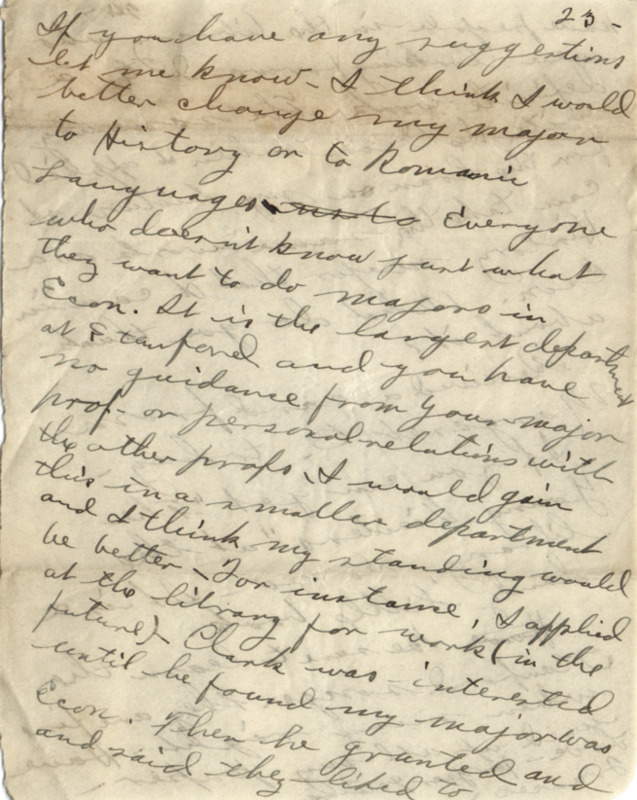 23-
If you have any suggestions
let me know - I think I would
better change my major
to History or to Romanic
Languages. Everyone
who doesn't know just what
they want to do majors in
Econ. It is the largest department
at Stanford and you have
no guidance from your major
prof. or personal relations with
the other profs. I would gain
this in a smaller department
and I think my standing would
be better - For instance, I applied
at the library for work (in the
future) - Clark was interested
until he found my major was
Econ. Then he grunted and
and said they liked to